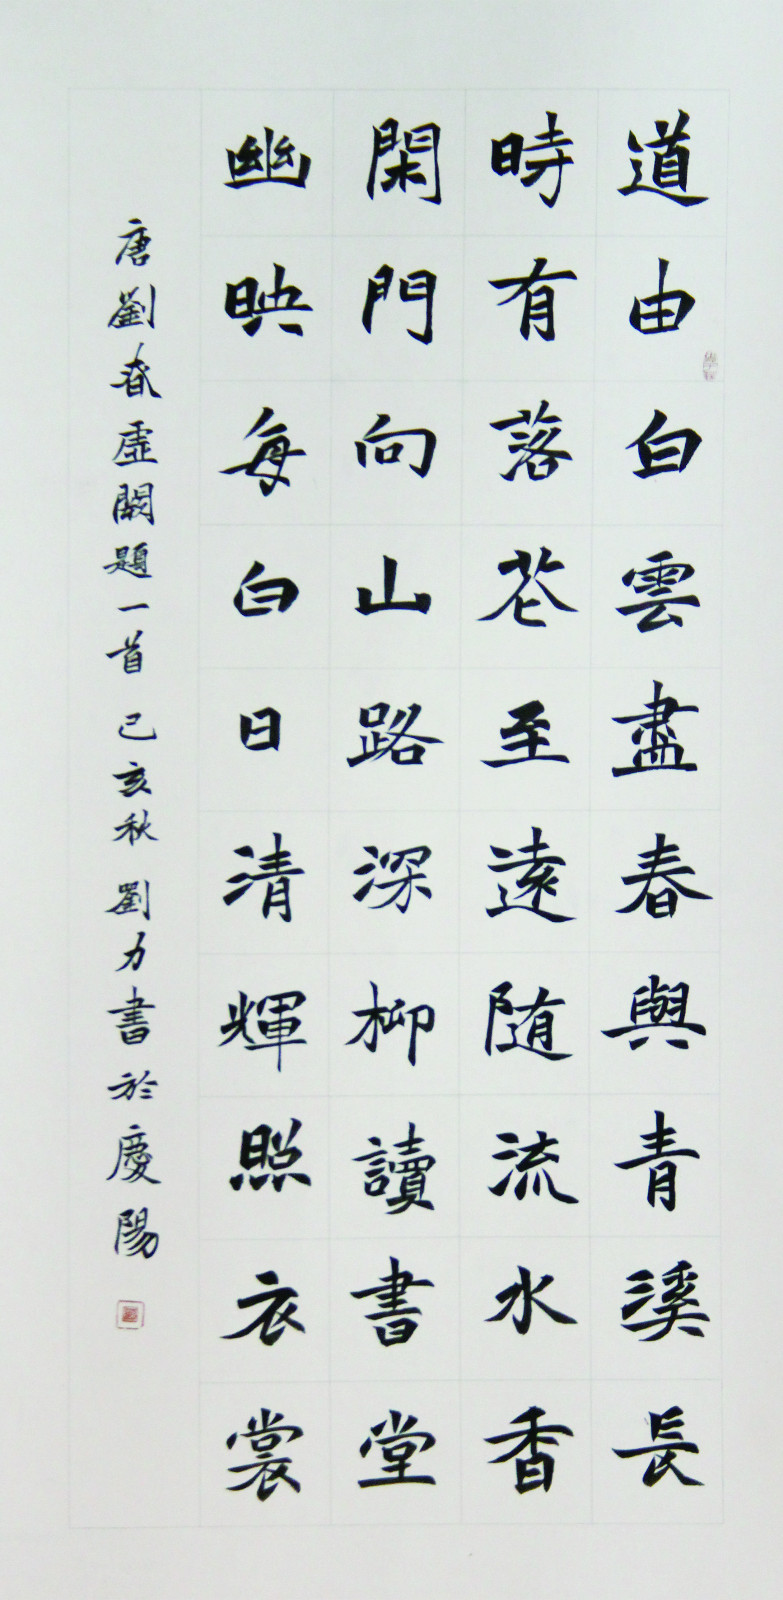 道由白雲盡春與青溪長
時有落花至遠随流水香
閑門向山路深柳讀書堂
幽映每白日清輝照衣裳
唐劉眘虛闕題一首 己亥秋 劉力書於慶陽